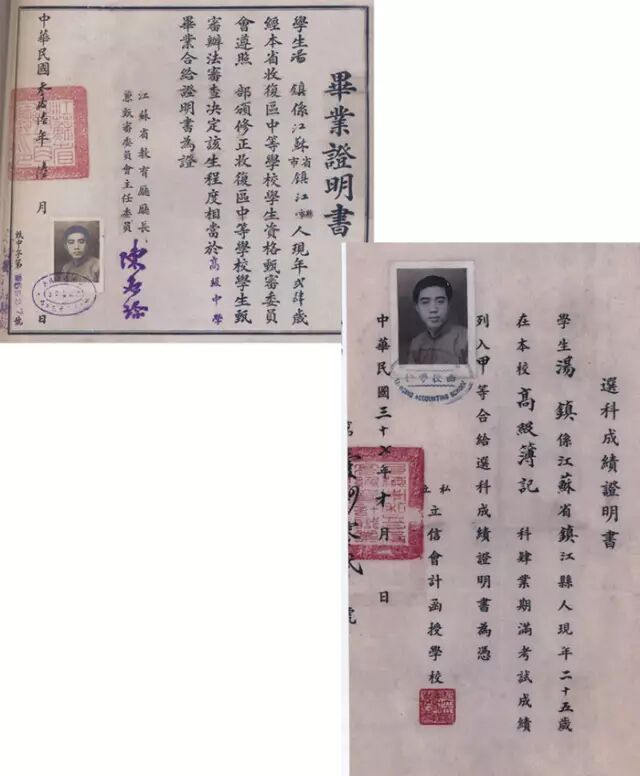 畢業證明書
學生湯鎮係江蘇省市鎮江縣市人現年貳肆歲
經本省收復區中等學校學生資格甄審委員
會遵照部頒修正收復區中等學校學生甄
審辦法審查決定該生程度相當於高級中學
畢業合給證明書為證
江蘇省教育廳廳長
兼甄審委員會主任委員
中華民國叁拾陸年 月 日
選科成績證明書
學生湯鎮係江蘇省鎮江縣人現年二十五歲
在本校高級簿記科肄業期滿考試成績
列入甲等合給選科成績證明書為憑
私立立信會計函授學校
中華民國三十七年 月 日
ACCOUNTING SCHOOL